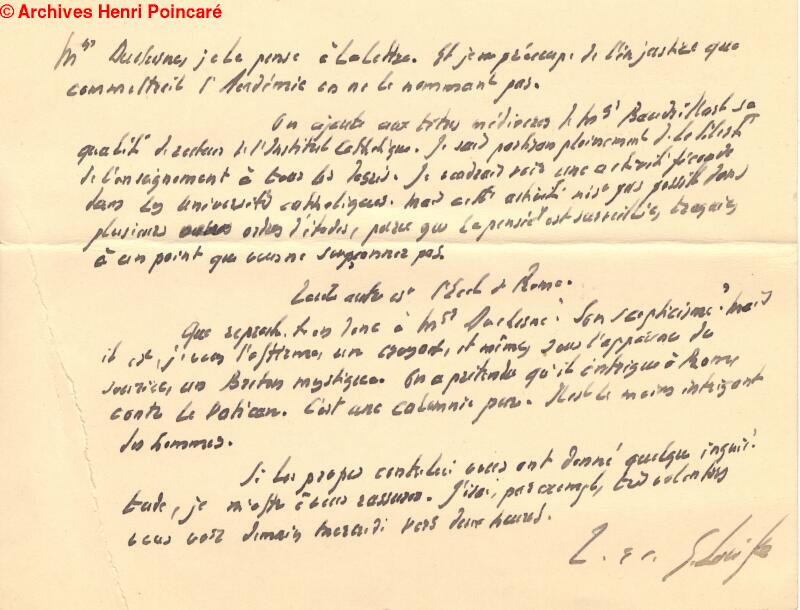 © Archives Henri Poincaré
Mgr Duchesne, je le pense à la lettre. Et je me préoccupe de l'injustice que
commettrait l'Académie en ne le nommant pas.
On ajoute aux titres médiocres de Mgr Baudrillart sa
qualité de recteur de l'Institut Catholique. Je suis partisan pleinement de la liberté
de l'enseignement à tous les degrés. Je voudrais voir une activité féconde
dans les universités catholiques. Mais cette activité n'est pas possible dans
plusieurs ordres d'études, parce que la pensée est surveillée, traquée
à un point que vous ne soupçonnez pas.
Toute autre est l'Ecole de Rome.
Que reproche-t-on donc à Mgr Duchesne? Son scepticisme? Mais
il est, j'vous l'affirme, un croyant, et même, sous l'apparence du
sourire, un Breton mystique. On a prétendu qu'il intrigue à Rome
contre le Vatican. C'est une calomnie pure. Il est le moins intrigant
des hommes.
Si les propos contre lui vous ont donné quelque inquié-
tude, je m'offre à vous rassurer. J'irai, par exemple, très volontiers
vous voir demain mercredi vers deux heures.